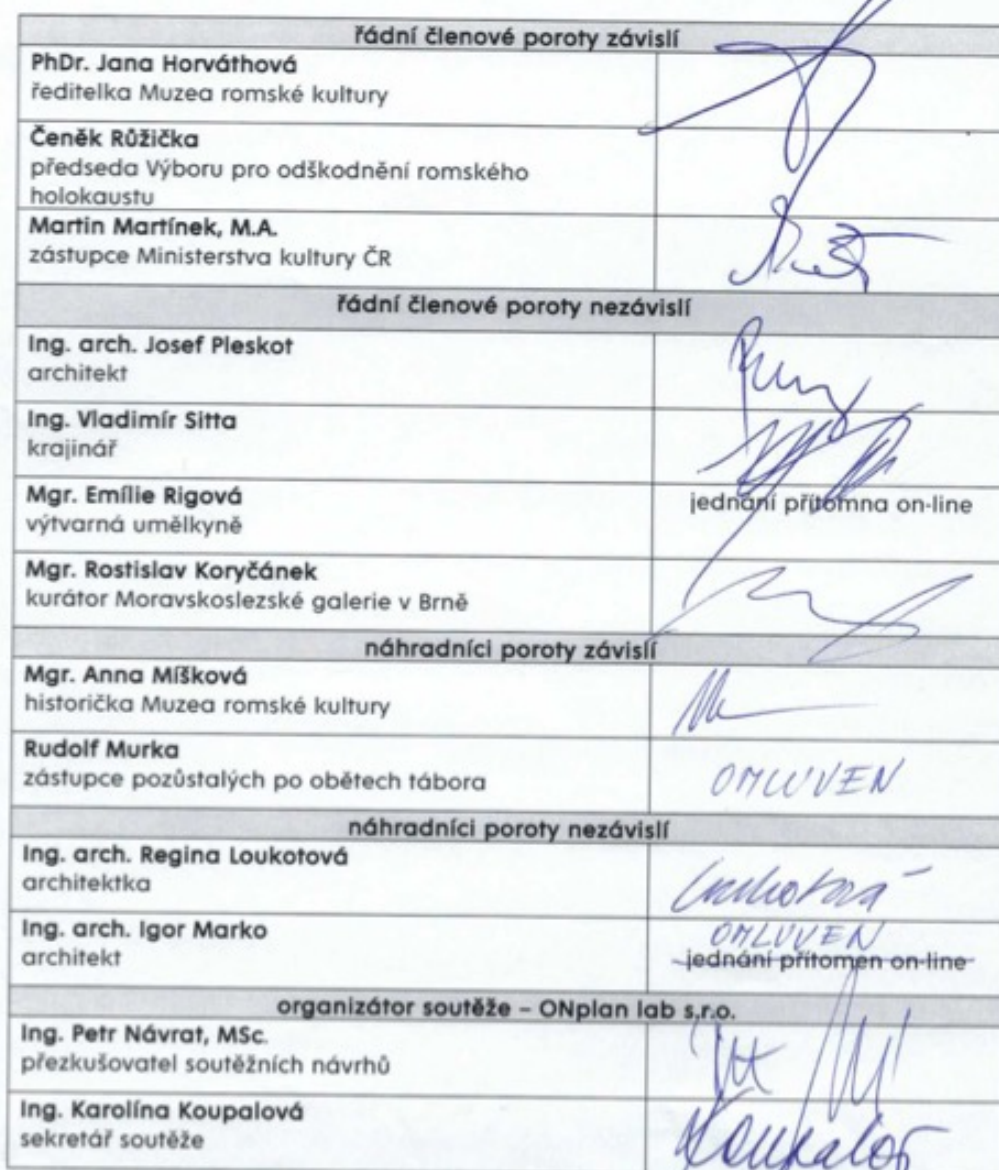 řádní členové poroty závislí
PhDr. Jana Horváthová
ředitelka Muzea romské kultury
Čeněk Růžička
předseda Výboru pro odškodnění romského
holokaustu
Martin Martínek, M.A.
zástupce Ministerstva kultury ČR
řádní členové poroty nezávislí
Ing. arch. Josef Pleskot
architekt
Ing. Vladimír Sitta
krajinář
Mgr. Emílie Rigová
výtvarná umělkyně
jednání přítomna on-line
Mgr. Rostislav Koryčánek
kurátor Moravskoslezské galerie v Brně
náhradníci poroty závislí
Mgr. Anna Míšková
historička Muzea romské kultury
Rudolf Murka
zástupce pozůstalých po obětech tábora
OMLUVEN
náhradníci poroty nezávislí
Ing. arch. Regina Loukotová
architektka
Loukotová
Ing. arch. Igor Marko
architekt
OMLUVEN
jednání přítomen on-line
organizátor soutěže – ONplan lab s.r.o.
Ing. Petr Návrat, MSc.
přezkušovatel soutěžních návrhů
Ing. Karolína Koupalová
sekretář soutěže